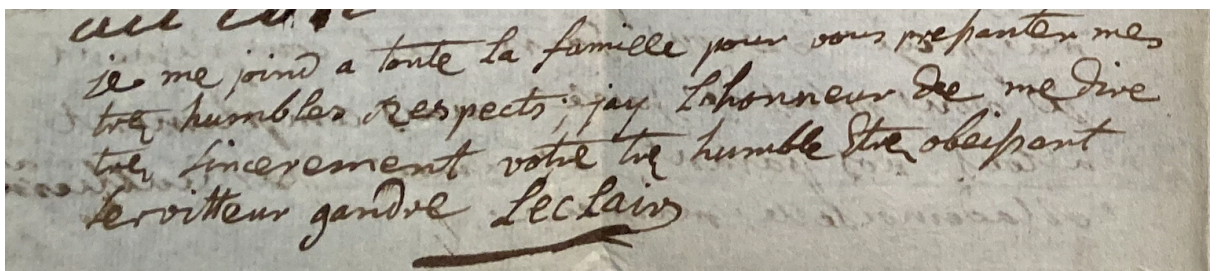 je me joind a toute la famille pour vous presanter mes
tres humbles Respects, jay Lhonneur de me dire
tres sincerement votre tres humble & tres obeissant
servitteur gandre Leclair